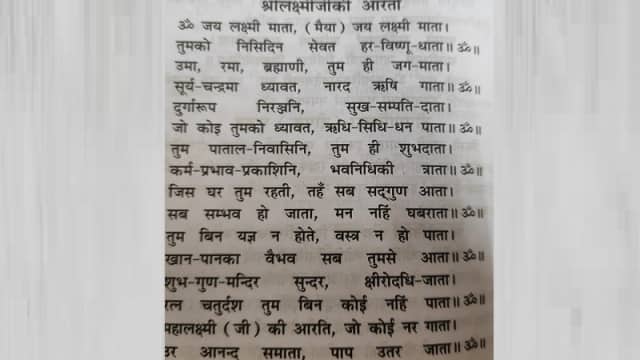 श्रीलक्ष्मीजीकी आरती
ॐ जय लक्ष्मी माता, (मैया) जय लक्ष्मी माता।
तुमको निसिदिन सेवत हर-विष्णू-धाता॥ॐ॥
उमा, रमा, ब्रह्माणी, तुम ही जग-माता।
सूर्य-चन्द्रमा ध्यावत, नारद ऋषि गाता॥ॐ॥
दुर्गारूप निरञ्जनि, सुख-सम्पति-दाता।
जो कोइ तुमको ध्यावत, ऋधि-सिधि-धन पाता॥ॐ॥
तुम पाताल-निवासिनि, तुम ही शुभदाता।
कर्म-प्रभाव-प्रकाशिनि, भवनिधिकी त्राता॥ॐ॥
जिस घर तुम रहती, तहँ सब सद्‌गुण आता।
सब सम्भव हो जाता, मन नहिं घबराता॥ॐ॥
तुम बिन यज्ञ न होते, वस्त्र न हो पाता।
खान-पानका वैभव सब तुमसे आता॥ॐ॥
शुभ-गुण-मन्दिर सुन्दर, क्षीरोदधि-जाता।
रत्न चतुर्दश तुम बिन कोई नहिं पाता॥ॐ॥
महालक्ष्मी (जी) की आरति, जो कोई नर गाता।
उर आनन्द समाता, पाप उतर जाता॥ॐ॥